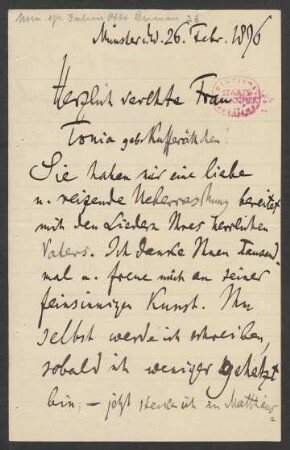 Münster i/W. 26. Febr. 1896
Herzlich verehrte Frau
Tonia geb. Kufferathchen!
Sie haben mir eine liebe
u. reizende Ueberraschung bereitet
mit den Liedern Ihres herrlichen
Vaters. Ich danke Ihnen tausend
mal u. freue mich an seiner
feinsinnigen Kunst. Ihm
selbst werde ich schreiben,
sobald ich weniger gehetzt
bin; – jetzt stecke ich in Matthäus